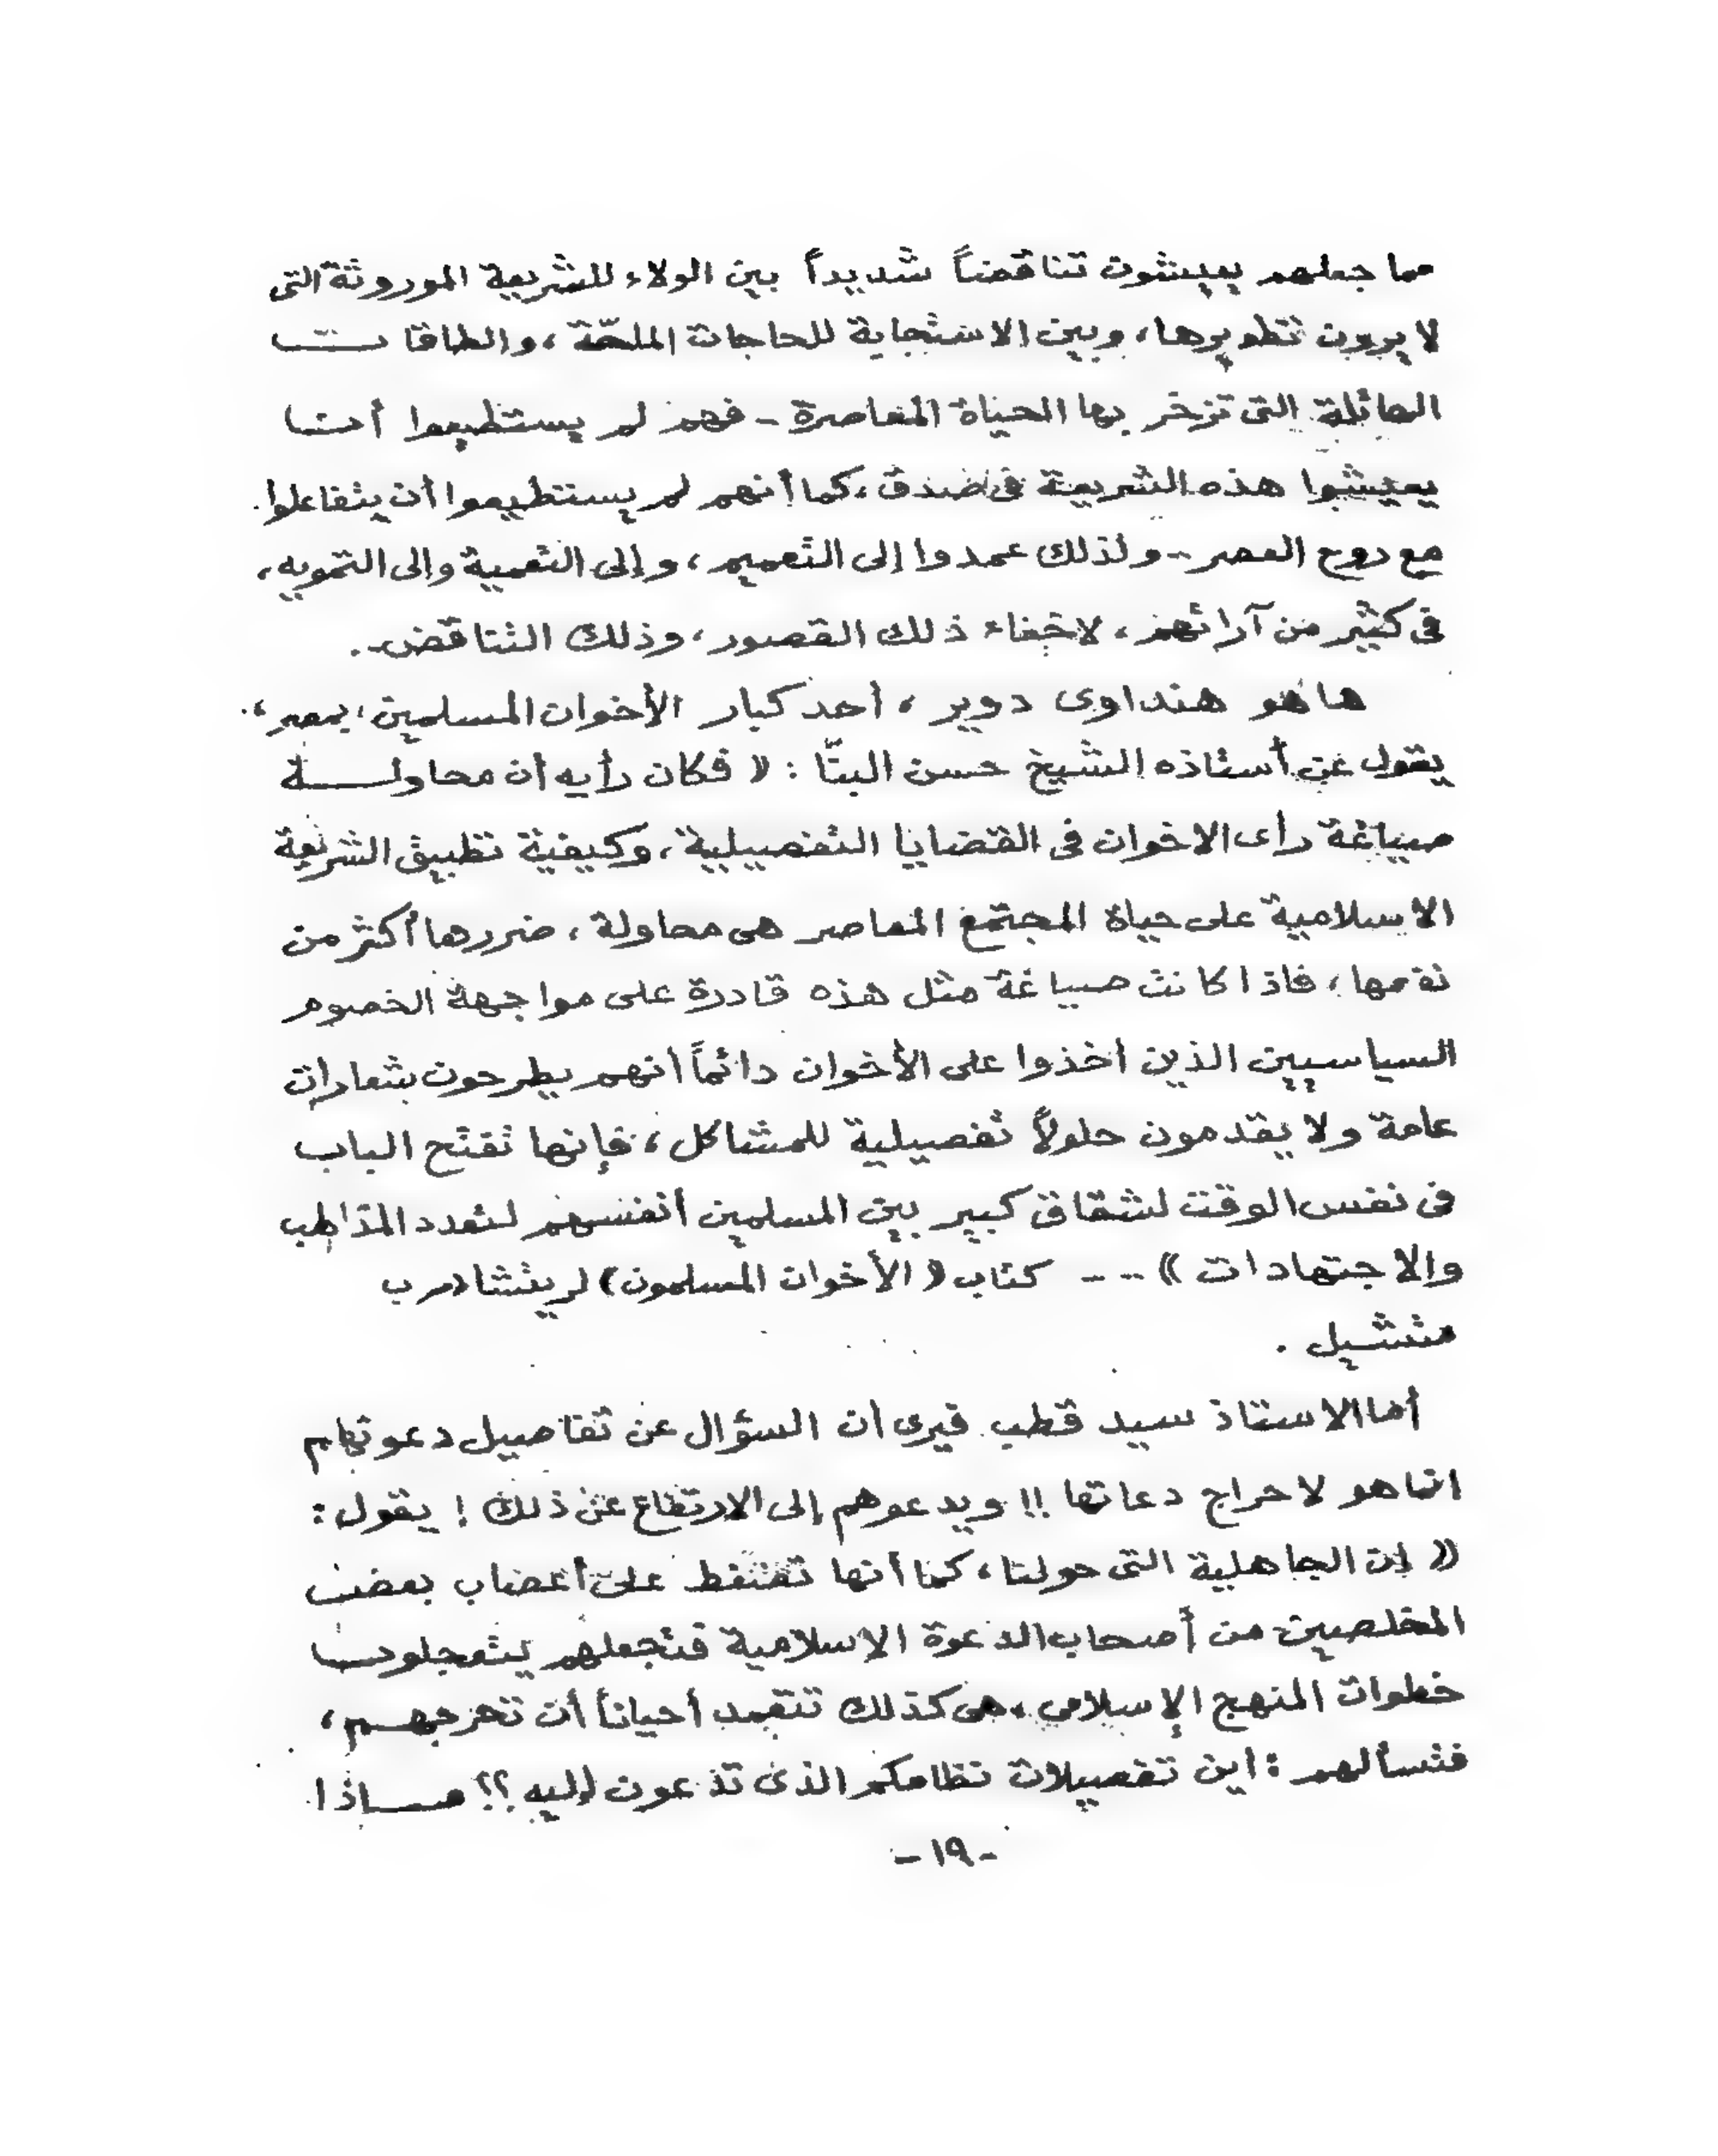 مما جعلهم يعيشون تناقضاً شديداً بين الولاء للشريعة الموروثة التى
لا يرون تطويرها، وبين الاستجابة للحاجات الملحّة، والطاقات
الهائلة التى تزخر بها الحياة المعاصرة - فهم لم يستطيعوا أن
يعيشوا هذه الشريعة فى صدق، كما أنهم لم يستطيعوا أن يتفاعلوا
مع روح العصر -- ولذلك عمدوا إلى التعميم، وإلى التعمية والى التمويه،
فى كثير من آرائهم، لاخفاء ذلك القصور، وذلك التناقض.
ها هو هنداوى دوير، أحد كبار الأخوان المسلمين، بمصر،
يقول عن أستاذه الشيخ حسن البنّا : « فكان رأيه أن محاولـــة
صياغة رأى الاخوان فى القضايا التفصيلية، وكيفية تطبيق الشريعة
الاسلامية على حياة المجتمع المعاصر هى محاولة، ضررها أكثر من
نفعها، فاذا كانت صياغة مثل هذه قادرة على مواجهة الخصوم
السياسيين الذين أخذوا على الأخوان دائماً أنهم يطرحون شعارات
عامة ولا يقدمون حلولاً تفصيلية للمشاكل، فإنها تفتح الباب
فى نفس الوقت لشقاق كبير بين المسلمين أنفسهم لتعدد المذاهب
والاجتهادات » -- -- كتاب (الأخوان المسلمون) لريتشارد ب
متشيل .
أما الاستاذ سيد قطب فيرى أن السؤال عن تفاصيل دعوتهم
انما هو لاحراج دعاتها !! ويدعوهم إلى الارتفاع عن ذلك ! يقول :
« إن الجاهلية التى حولنا، كما أنها تضغط على أعصاب بعض
المخلصين من أصحاب الدعوة الإسلامية فتجعلهم يتعجلون
خطوات المنهج الإسلامى، هى كذلك تتعمد أحياناً أن تحرجهــم،
فتسألهم : أين تفصيلات نظامكم الذى تدعون إليه ؟؟ مــاذا
- ١٩ -